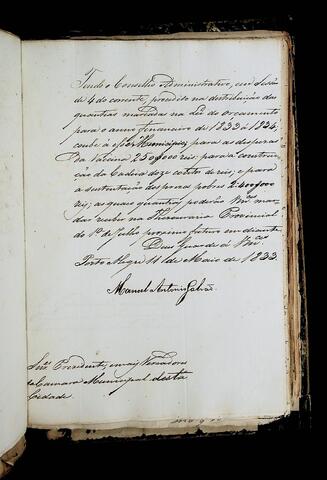 Tendo o Conselho Administrativo, em Sessão
de 4 do corrente, procedido na distribuição das
quantias marcadas na Lei do orçamento
para o anno financeiro de 1833 a 1834,
coube a esse Municipio, para as despezas
da Vacina 250$000 reis, para a construc-
ção da Cadeia doze contos de reis; e para
a sustentação dos prezos pobres 2:400$000
reis; as quaes quantias poderão Vm.ces man-
dar receber na Thesouraria Provincial
do 1º de Julho proximo futuro em diante.
Deus Guarde a Vm.ces
Porto Alegre 11 de Maio de 1833.
Manoel Antonio Galvão
Snr.es Presidente, e mais Vereadores
da Camara Municipal desta
Cidade